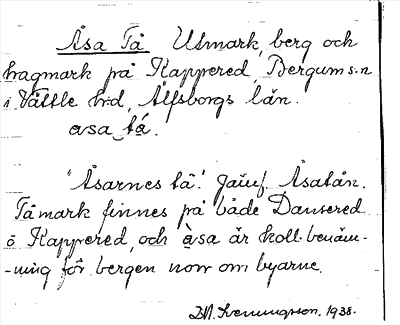 Åsa Tå Utmark, berg och
hagmark på Kappered, Bergums.n
i Vättle h:d, Älfsborgs län.
åsa tå.
"Åsarnes tå". Jämf. Åsatån.
Tåmark finnes på både Dansered
o Kappered, och åsa är koll. benäm-
-ning för bergen norr om byarne.
D.M. Svenungsson. 1938.